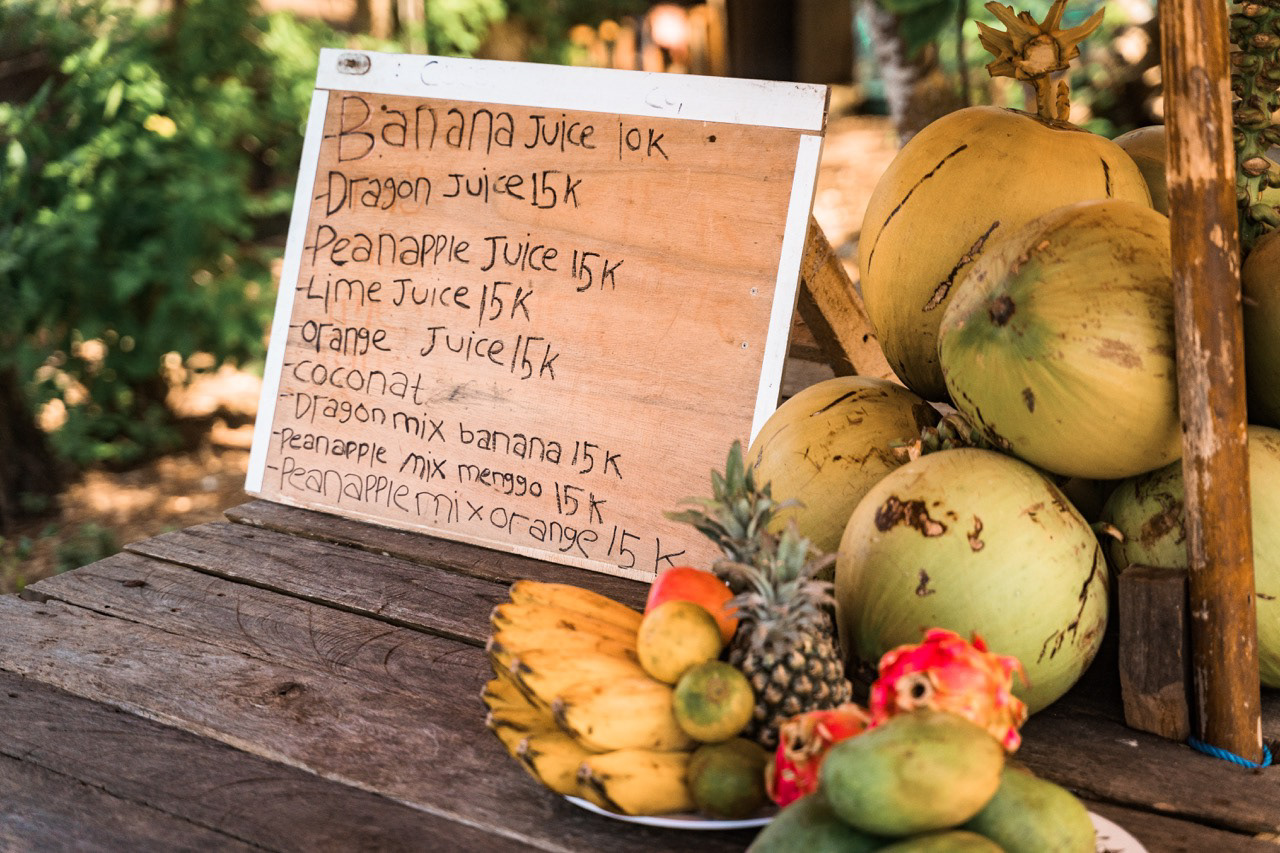 -Banana Juice 10K
-Dragon Juice 15K
-Peanapple Juice 15K
-Lime Juice 15K
-orange Juice 15K
-coconat
-Dragon mix banana 15K
-peanapple mix menggo 15K
-Peanapple mix orange 15K